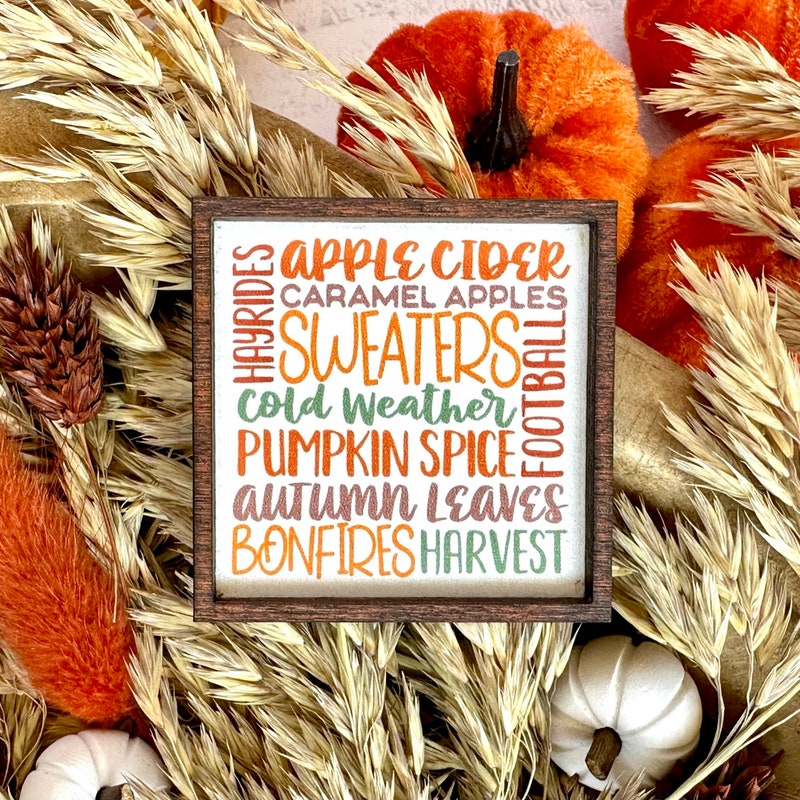 HAYRIDES
APPLE CIDER
CARAMEL APPLES
SWEATERS
FOOTBALL
Cold Weather
PUMPKIN SPICE
AUTUMN LEAVES
BONFIRES HARVEST